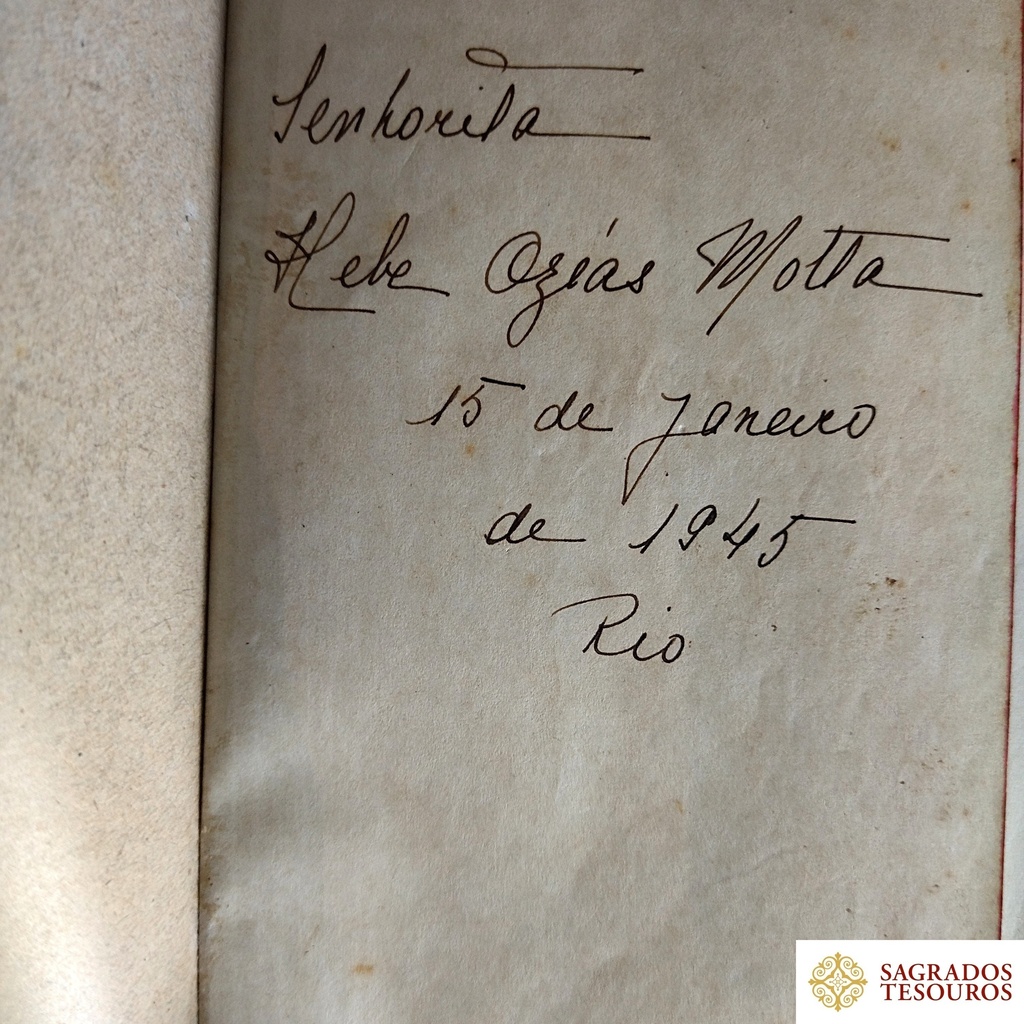 Senhorita
Hebe Oziás Motta
15 de Janeiro
de 1945
Rio
SAGRADOS
TESOUROS